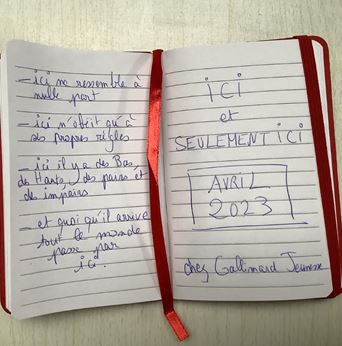 - ici ne ressemble à
nulle part
- ici n'obéit qu'à
ses propres règles
- ici il y a des Bas,
des Hauts, des pairs et
des impairs
- et quoi qu'il arrive
tout le monde
passe par
ici.
ici
et
SEULEMENT ICI
AVRIL
2023
chez Gallimard Jeunesse